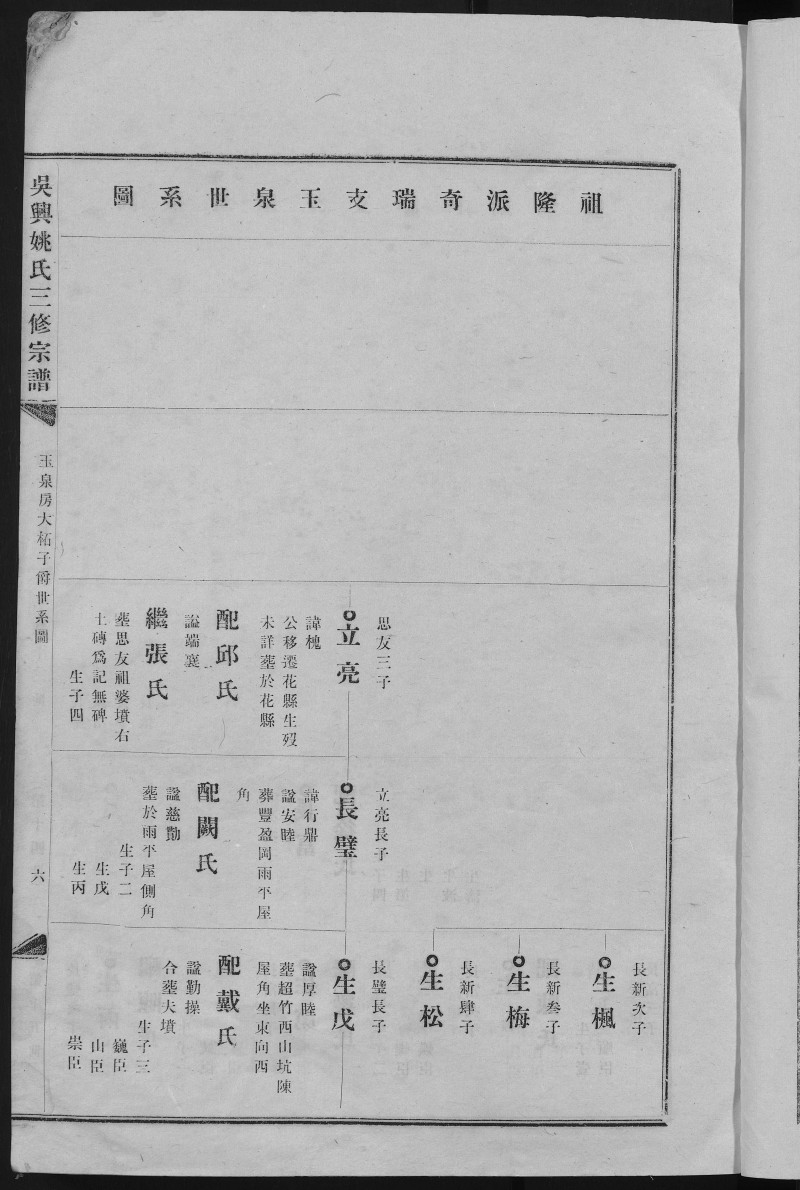 祖隆派奇瑞支玉泉世系圖
思友三子
立亮
諱槐
公移遷花縣生歿
未詳塟於花縣
配邱氏
謚端襄
繼張氏
塟思友祖婆墳右
土磚爲記無碑
生子四
立亮長子
長璧
諱行鼎
謚安睦
葬豐盈岡雨平屋
角
配闕氏
謚慈勤
塟於雨平屋側角
生子二
生戊
生丙
長新次子
生楓
長新叁子
生梅
長新肆子
生松
長璧長子
生戊
謚厚睦
塟超竹西山坑陳
屋角坐東向西
配戴氏
謚勤操
合塟夫墳
生子三
巍臣
山臣
崇臣
吳興姚氏三修宗譜
玉泉房大柘子爵世系圖
六